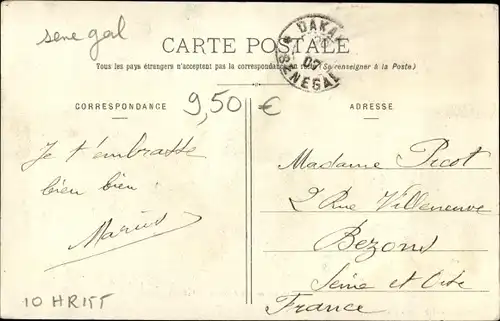 sene gal
CARTE POSTALE
Tous les pays étrangers n'acceptent pas la correspondance au recto (Se renseigner à la Poste)
DAKAR
07
SENEGAL
CORRESPONDANCE
9,50 €
ADRESSE
Je t'embrasse
bien bien
Marius
Madame Picot
2 Rue Villeneuve
Bezons
Seine et Oise
France
10 HR155